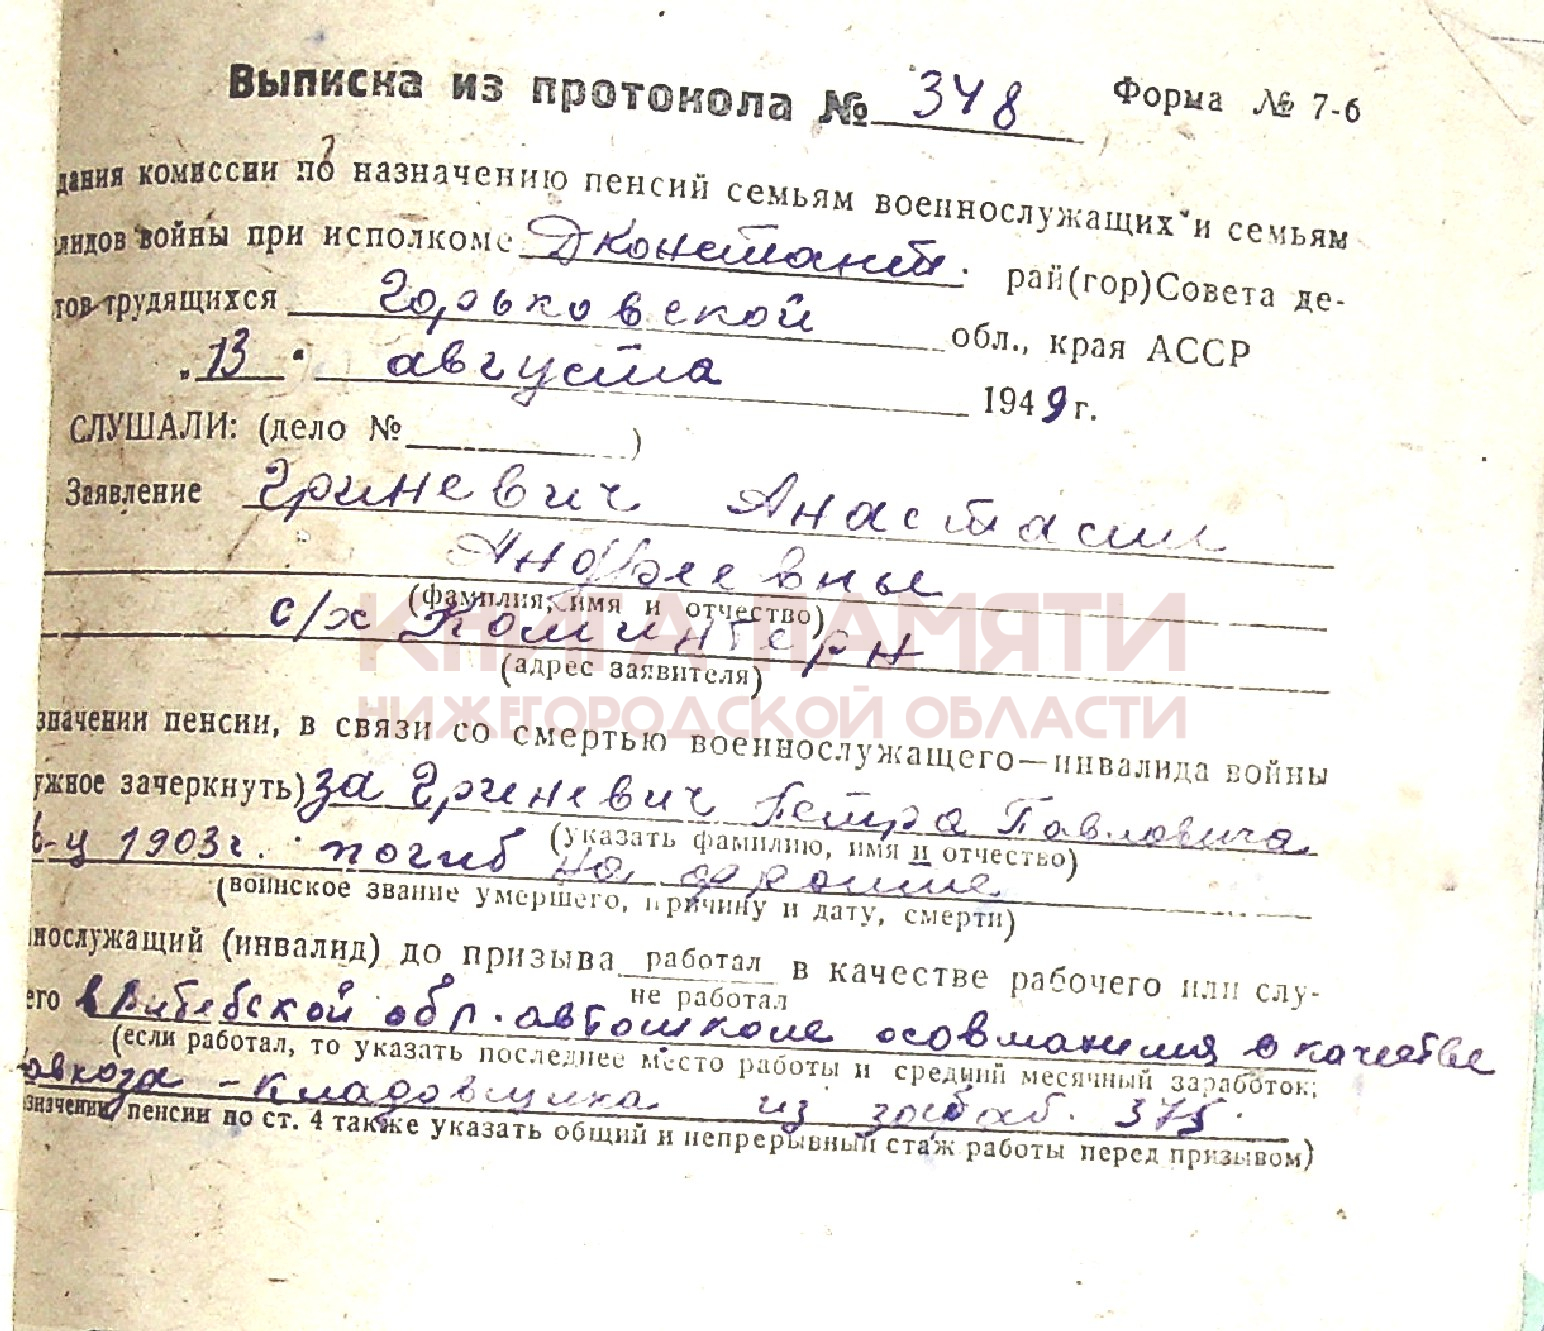 Выписка из протокола № 348 Форма № 7-б
дания комиссии по назначению пенсий семьям военнослужащих и семьям
лидов войны при исполкоме Дконстант. рай(гор)Совета де-
тов трудящихся Горьковской обл., края АССР
„13" августа 1949 г.
СЛУШАЛИ: (дело № )
Заявление Гриневич Анастасии
Андреевны
(фамилия, имя и отчество)
с/х Коминтерн
(адрес заявителя)
КНИГА ПАМЯТИ
НИЖЕГОРОДСКОЙ ОБЛАСТИ
значении пенсии, в связи со смертью военнослужащего—инвалида войны
ужное зачеркнуть) за Гриневич Петра Павловича
(указать фамилию, имя и отчество)
б-ц 1903г. погиб на фронте
(воинское звание умершего, причину и дату, смерти)
нослужащий (инвалид) до призыва работал в качестве рабочего или слу-
не работал
его в Витебской обл. автошколе осовиахима в качестве
(если работал, то указать последнее место работы и средний месячный заработок;
завхоза - кладовщика из зараб. 375
значении пенсии по ст. 4 также указать общий и непрерывный стаж работы перед призывом)